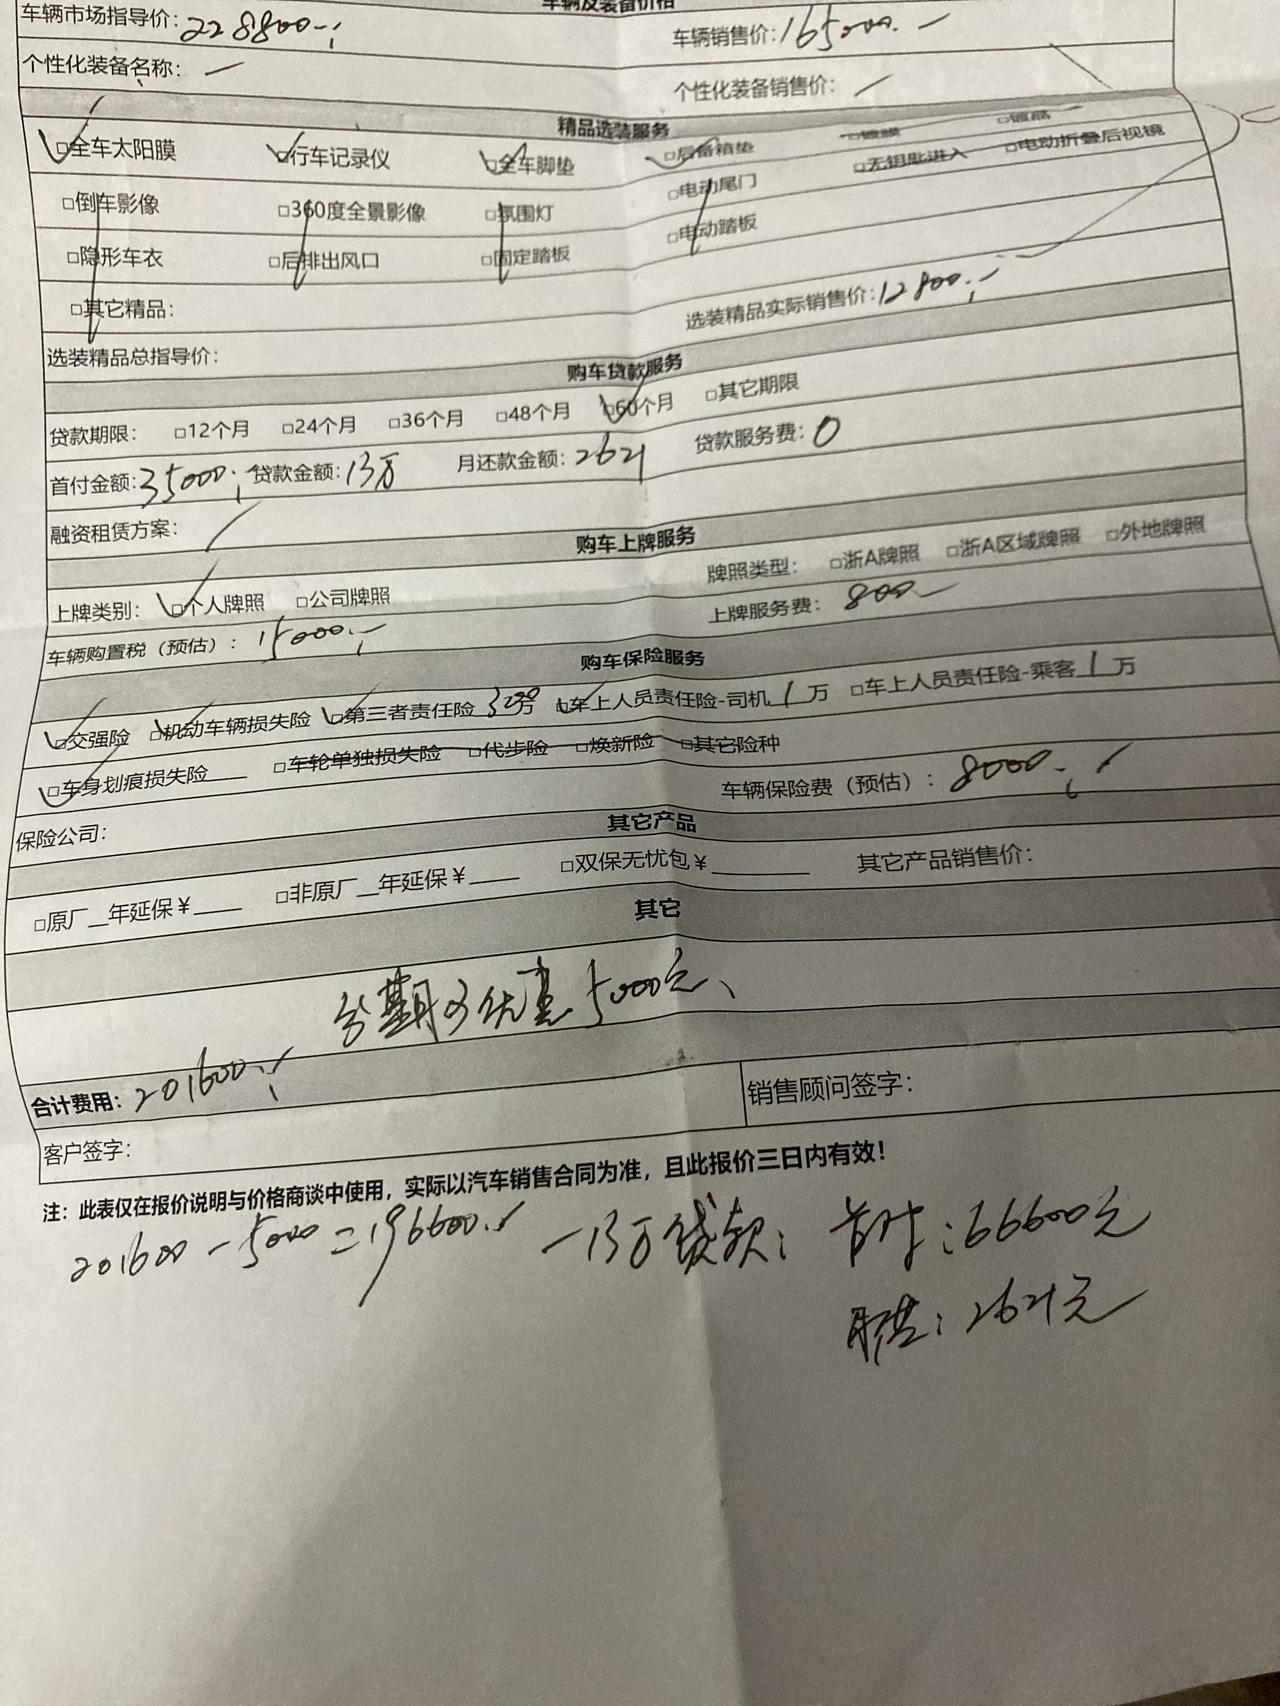 车辆及装备价格
车辆市场指导价：228800 车辆销售价：165000
个性化装备名称： 个性化装备销售价：
精品选装服务
□全车太阳膜 □行车记录仪 □全车脚垫 □后备箱垫 □镀膜 □镀晶
□倒车影像 □360度全景影像 □氛围灯 □电动尾门 □无钥匙进入 □电动折叠后视镜
□隐形车衣 □后排出风口 □固定踏板 □电动踏板
□其它精品：
选装精品总指导价： 选装精品实际销售价：12800
购车贷款服务
贷款期限： □12个月 □24个月 □36个月 □48个月 □60个月 □其它期限
首付金额：35000 贷款金额：13万 月还款金额：2621 贷款服务费：0
融资租赁方案：
购车上牌服务
上牌类别： □个人牌照 □公司牌照 牌照类型： □浙A牌照 □浙A区域牌照 □外地牌照
车辆购置税（预估）：15000 上牌服务费：800
购车保险服务
□交强险 □机动车辆损失险 □第三者责任险300万 □车上人员责任险-司机1万 □车上人员责任险-乘客1万
□车身划痕损失险____ □车轮单独损失险 □代步险 □焕新险 □其它险种
保险公司： 车辆保险费（预估）：8000
其它产品
□原厂__年延保￥____ □非原厂__年延保￥____ □双保无忧包￥________ 其它产品销售价：
其它
分期可优惠5000元、
合计费用：201600
客户签字： 销售顾问签字：
注：此表仅在报价说明与价格商谈中使用，实际以汽车销售合同为准，且此报价三日内有效！
201600-5000=196600 -13万贷款； 首付：66600元
月供：2621元